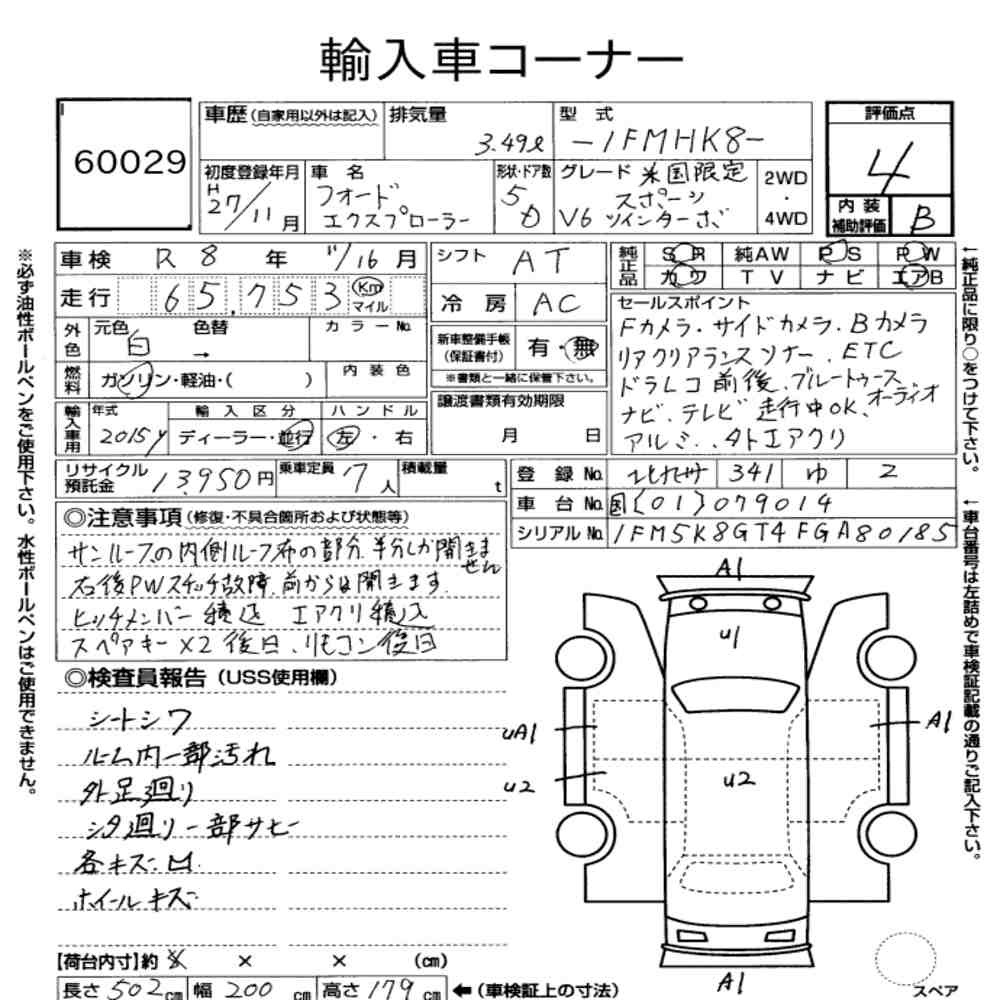 輸入車コーナー
60029
車歴(自家用以外は記入) 排気量 3.49ℓ 型式 -1FMHK8-
評価点 4
内装補助評価 B
初度登録年月 H27/11月 車名 フォード エクスプローラー 形状・ドア数 5D グレード 米国限定 スポーツ V6 ツインターボ 2WD・4WD
車検 R8年 11/16月
走行 65,753 Km マイル
シフト AT
冷房 AC
純正品 SR 純AW PS PW
カワ TV ナビ エアB
外色 元色 白 色替 → カラーNo.
燃料 ガソリン・軽油・( ) 内装色
新車整備手帳(保証書付) 有・無
※書類と一緒に保管下さい。
譲渡書類有効期限
月 日
セールスポイント
Fカメラ・サイドカメラ・Bカメラ
リアクリアランスソナー、ETC
ドラレコ前後、ブルートゥースオーディオ
ナビ、テレビ走行中OK、
アルミ、、外エアクリ
輸入車用 年式 2015y 輸入区分 ディーラー・並行 ハンドル 左・右
リサイクル預託金 13,950円 乗車定員 7人 積載量 t
登録No. 341 ゆ 2
車台No. 国(01)079014
シリアルNo. 1FM5K8GT4FGA80185
◎注意事項(修復・不具合箇所および状態等)
サンルーフの内側ルーフ布の部分半分しか開きません
右後PWスイッチ故障、前からは開きます
ヒッチメンバー積込 エアクリ積込
スペアキー×2後日、リモコン後日
◎検査員報告(USS使用欄)
シートシワ
ルーム内一部汚れ
外足廻り
シタ廻り一部サビ
各キズ凹
ホイールキズ
A1
U1
UA1
A1
U2
U2
A1
スペア
【荷台内寸】約 × × × (cm)
長さ 502cm 幅 200cm 高さ 179cm ←(車検証上の寸法)
※必ず油性ボールペンをご使用下さい。水性ボールペンはご使用できません。
←純正品に限り○をつけて下さい。
←車台番号は左詰めで車検証記載の通りご記入下さい。